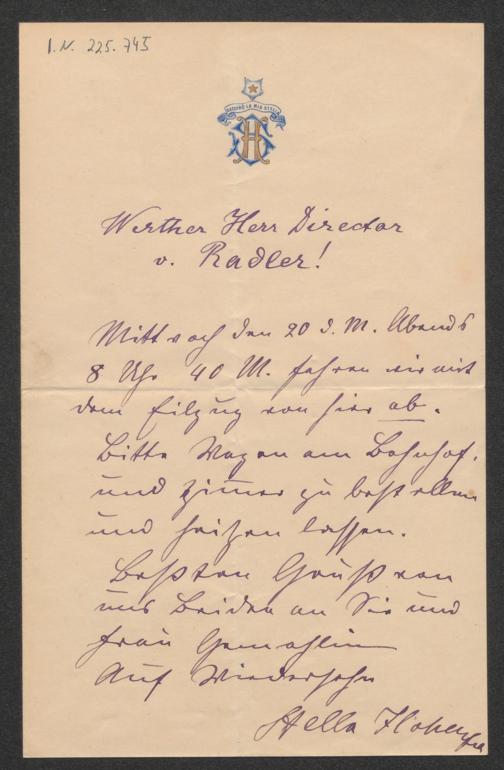 I.N. 225.745
Werther Herr Director
v. Radler!
Mittwoch den 20 d. M. Abends
8 Uhr 40 M. fahren wir mit
dem Eilzug von hier ab.
Bitte Wagen am Bahnhof,
und Zimmer zu bestellen
und heitzen lassen.
Beßten Gruß von
uns Beiden an Sie und
Frau Gemahlin
Auf Wiedersehn
Stella Hohenfels